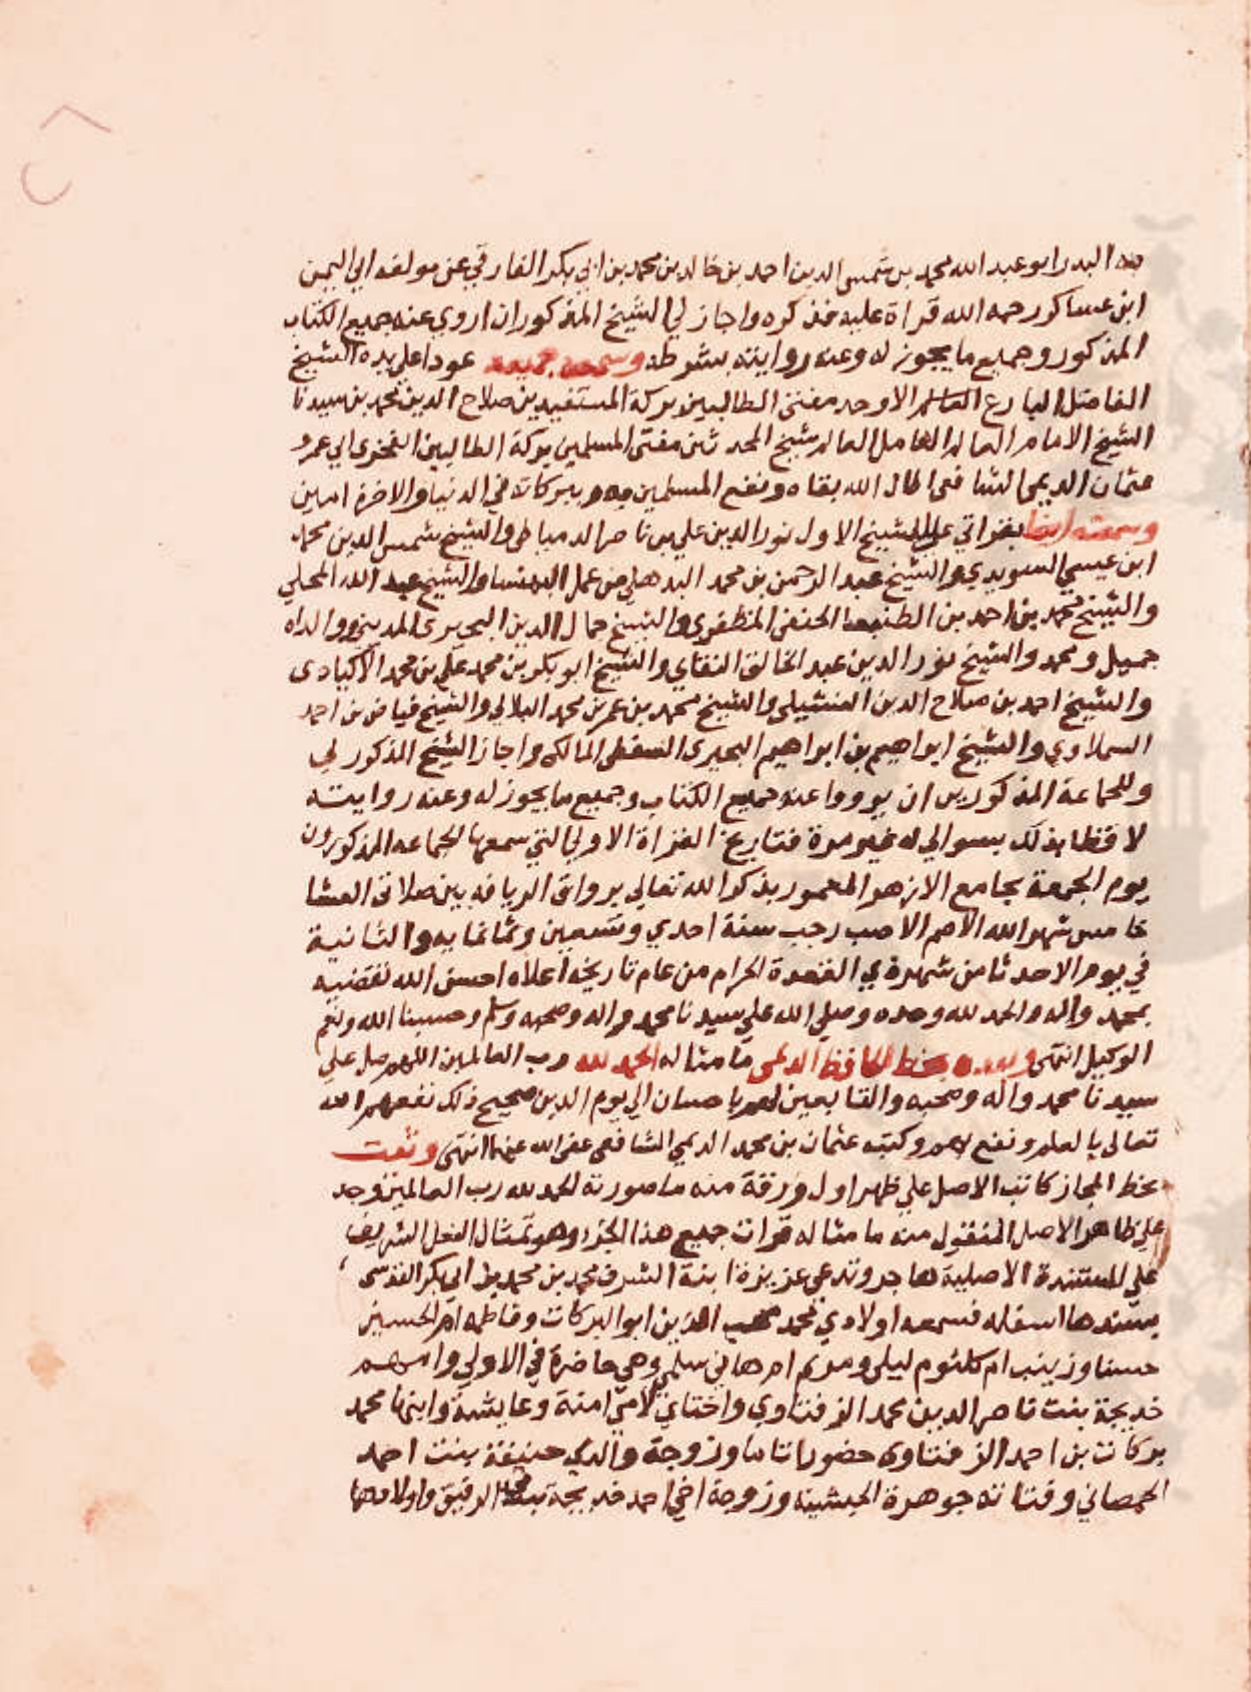 به البدر ابو عبد الله محمد بن شمس الدين احمد بن خالد بن محمد بن ابي بكر الفارقي عن مولفه ابي اليمن
ابن عساكر رحمه الله قراة عليه فذكره واجاز لي الشيخ المذكور ان اروي عنه جميع الكتاب
المذكور وجميع ما يجوز له وعنه روايته بشرطه وسمعت جميعه عودا علي بده الشيخ
الفاضل البارع العالم الاوحد مفتي الطالبين بركة المستفيدين صلاح الدين محمد بن سيدنا
الشيخ الامام العالم العامل العالم شيخ المحدثين مفتي المسلمين بركة الطالبين الفخري ابي عمرو
عثمان الديمي الشافعي اطال الله بقاه ونفع المسلمين به وببركاته في الدنيا والاخرة امين
وسمعته ايضا بقراتي علي الشيخ الاول نور الدين علي بن ناصر الدمياطي والشيخ شمس الدين محمد
ابن عيسي السويدي والشيخ عبد الرحمن بن محمد من عمل البهنسا والشيخ عبد الله المحلي
والشيخ محمد بن احمد بن الحنفي المظفري والشيخ جمال الدين البحيري المديني وولداه
جميل ومحمد والشيخ نور الدين عبد الخالق النفاي والشيخ ابو بكر بن محمد علي بن محمد الاكيادي
والشيخ احمد بن صلاح الدين المنشيلي والشيخ محمد بن عمر بن محمد البلالي والشيخ فياض بن احمد
السملاوي والشيخ ابراهيم بن ابراهيم البحيري السفطي المالكي واجاز الشيخ المذكور لي
وللجماعة المذكورين ان يرووا عنه جميع الكتاب وجميع ما يجوز له وعنه روايته
لافظا بذلك بسوالي له غير مرة فتاريخ القراة الاولي التي سمعها الجماعه المذكورون
يوم الجمعة بجامع الازهر المعمور بذكر الله تعالي برواق الريافه بين صلاتي العشا
خامس شهر الله الاصم الاصب رجب سنة احدي وتسعين وثمانمايه والثانية
في يوم الاحد ثامن شهر ذي القعدة الحرام من عام تاريخه اعلاه احسن الله تقضيه
بمحمد واله والحمد لله وحده وصلي الله علي سيدنا محمد واله وصحبه وسلم وحسبنا الله ونعم
الوكيل انتهي وبعده بخط الحافظ الديمي ما مثاله الحمد لله رب العالمين اللهم صل علي
سيدنا محمد واله وصحبه والتابعين لهم باحسان الي يوم الدين صحيح ذلك نفعهم الله
تعالي بالعلم ونفع بهم وكتبه عثمان بن محمد الديمي الشافعي عفي الله عنهما انتهي ونقت
بخط المجاز كاتب الاصل علي ظهر اول ورقة منه ما صورته الحمد لله رب العالمين وجد
علي ظاهر الاصل المنقول منه ما مثاله قرات جميع هذا الجزء وهو تمثال النعل الشريف
علي المستندة الاصلية هاجر وتدعي عزيزة ابنة الشرف محمد بن محمد بن ابي بكر القدسي
بسندها اسفله فسمعه اولادي محمد محب الدين ابو البركات وفاطمه ام الحسين
حسنا وزينب ام كلثوم ليلي ومريم ام هاني سلمي وهي حاضرة في الاولي وامهم
خديجة بنت ناصر الدين محمد الزفتاوي واختاي لامي امنة وعايشة وابنها محمد
بركات بن احمد الزفتاوي حضورا تاما وزوجة والدي حنيفة بنت احمد
الحمصاني وفتاته جوهرة الحبشيه وزوجة اخي احمد خديجة الرقيق واولادها